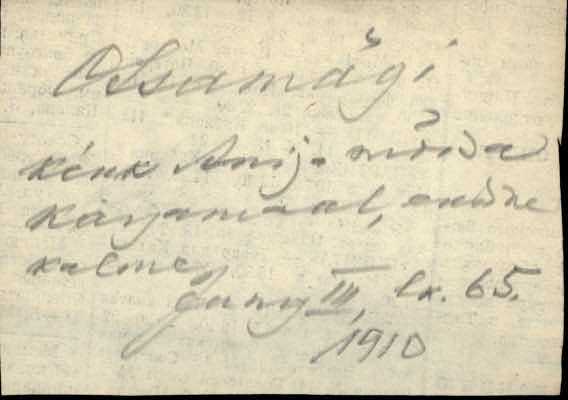 Ossamägi
kink Anija mõisa
karjamaal, endine
kalme,
Jung III, lk. 65.
1910